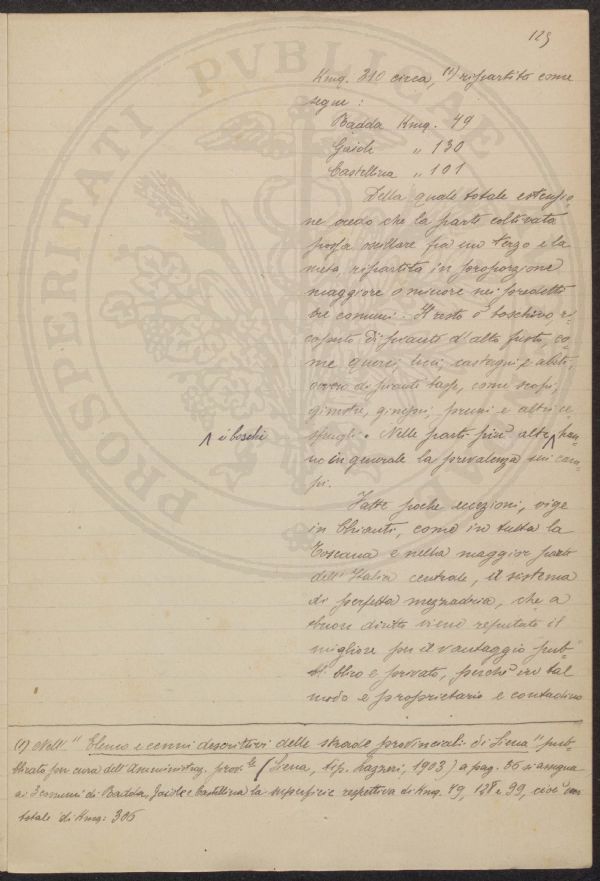 129
Kmq. 310 circa, (1) ripartito come
segue:
Radda Kmq. 79
Gaiole „ 130
Castellina „ 101
Della quale totale estensio-
ne credo che la parte coltivata
possa oscillare fra un terzo e la
metà, ripartita in proporzione
maggiore o minore nei predetti
tre comuni. Il resto è boschivo ri-
coperto di piante d'alto fusto, co-
me querci, lecci, castagni e abeti,
ovvero di piante basse, come scopi,
ginestre, ginepri, pruni e altri ce-
spugli. Nelle parti più alte ʌ han-
ʌ i boschi
no in generale la prevalenza sui cam-
pi.
Fatte poche eccezioni, vige
in Chianti, come in tutta la
Toscana e nella maggior parte
dell'Italia centrale, il sistema
di perfetta mezzadria, che a
buon diritto viene reputato il
migliore per il vantaggio pub-
blico e privato, perchè in tal
modo e proprietario e contadino
(1) Nell' "Elenco e cenni descrittivi delle strade provinciali di Siena" pub-
blicato per cura dell'Amministraz. prov.le (Siena, tip. Lazzeri, 1903) a pag. 35 si assegna
ai 3 comuni di Radda, Gaiole e Castellina la superficie respettiva di Kmq. 79, 128 e 99, cioè un
totale di Kmq: 306
PROSPERITATI PVBLICAE